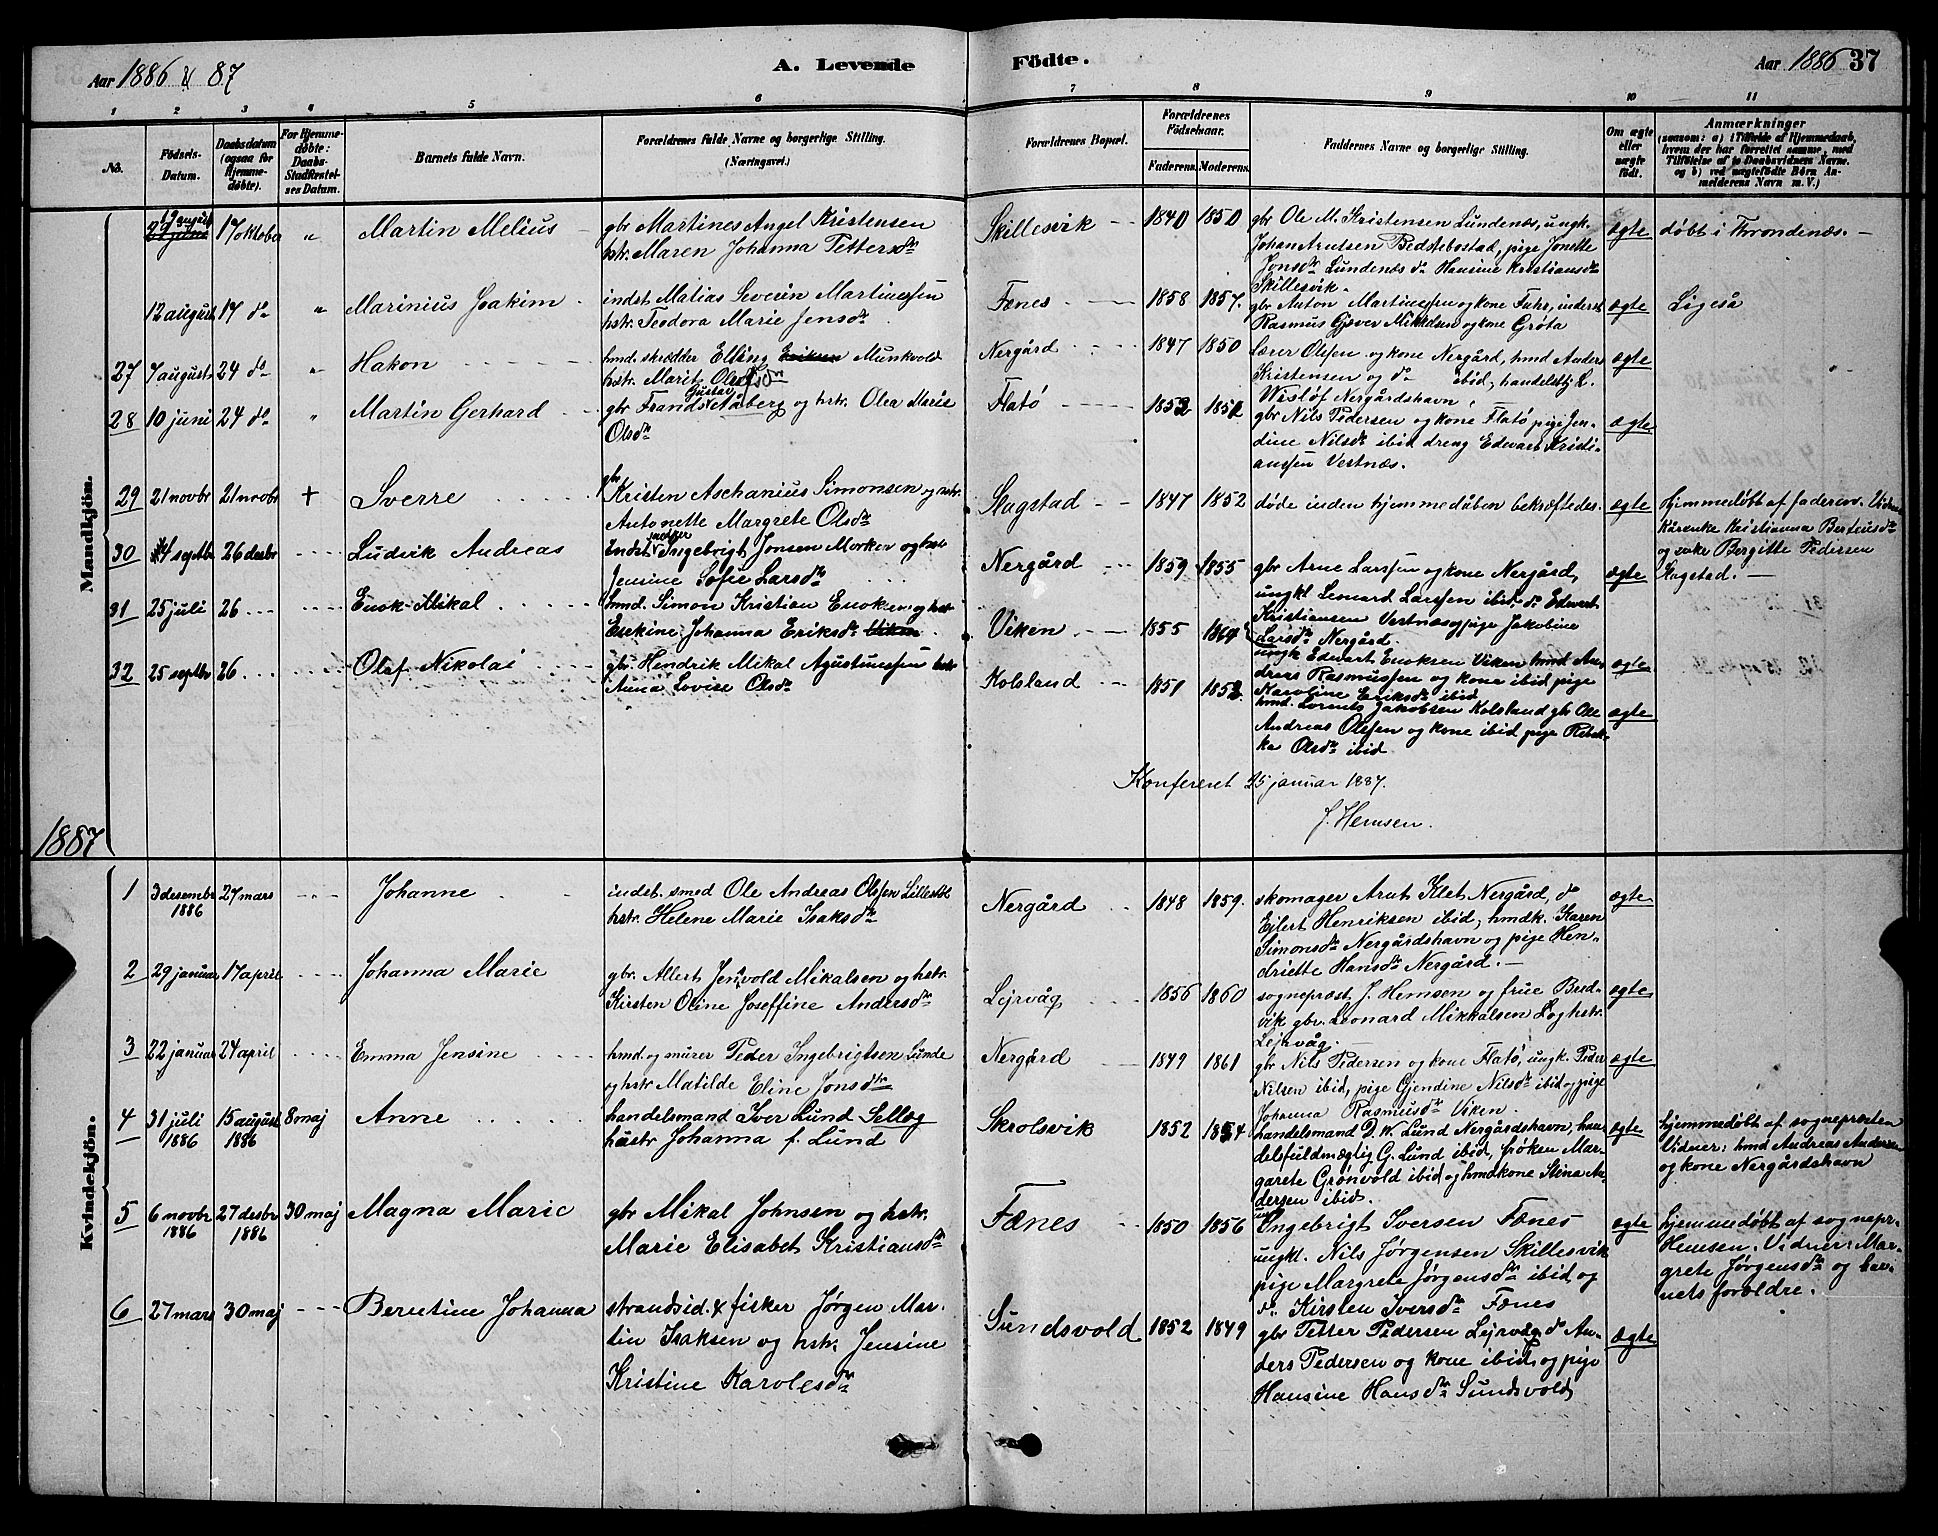 Aar 1886 & 87
A. Levende
Födte.
Aar 1886
37
1 2 3 4 5 6 7 8 9 10 11
No.
Födsels-Datum.
Daabsdatum (ogsaa for Hjemme-döbte).
For Hjemme-döbte: Daabs-Stadfæstel-ses Datum.
Barnets fulde Navn.
Forældrenes fulde Navne og borgerlige Stilling. (Næringsvei.)
Forældrenes Bopæl.
Forældrenes Födselsaar.
Faderens. Moderens.
Faddernes Navne og borgerlige Stilling.
Om ægte eller uægte födt.
Anmærkninger
(saasom: a) i Tilfælde af Hjemmedaab, hvem der har forrettet samme, med Tilföielse af to Daabsvidners Navne. og b) ved uægtefödte Börn An-melderens Navn m. V.)
Mandkjön.
19 august 17 oktober " Martin Melius
gbr Martines Angel Kristensen
hstr. Maren Johanna Pettersdtr
Skillesvik 1840 1850
gbr Ole M. Kristensen Lundenæs, ungk.
Johan Arntsen Bedstebostad, pige Jonette
Jonsdtr Lundenæs do Hansine Kristiansdtr
Skillesvik.
ægte døbt i Trondenæs.
12 august 17 do " Marinius Joakim
indst Matias Severin Martinussen
hstr. Teodora Marie Jensdtr
Fænes 1858 1857.
gbr Anton Martinussen og kone Fuhr, inderst
Rasmus Gjæver Mikkelsen og kone Grøta
ægte Ligeså
27 7 august 24 do " Hakon
hmd. skrædder Elling Eriksen Munkvold
hstr. Marit Olsdtr
Nergård 1847 1850
Lærer Olsen og kone Nergård, hmd Anders
Kristensen og do ibid, handelsbtj K.
Wisløf Nergårdshavn
ægte
28 10 juni 24 do " Martin Gerhard
gbr Frands Gustav Åberg og hstr. Olea Marie
Olsdtr
Flatø 1852 1851
gbr Nils Pedersen og kone Flatø, pige Jen-
dine Nilsdtr ibid dreng Edvart Kristi-
anssen Vestnæs.
ægte
29 21 novbr 21 novbr + Sverre
gbr Kristen Aschanius Simonsen og hstr.
Antonette Margrete Olsdtr
Slagstad 1847 1852
døde inden hjemmedåben bekræftedes.
ægte
Hjemmedøbt af faderen. Vidner
Kårenke Kristianna Berteusdtr
og enke Bergitte Pedersen
Slagstad.
30 4 septbr 26 desbr Ludvik Andreas
Indst Ingebrigt Jonsen Morken og hstr
Jensine Sofie Larsdtr
Nergård 1859 1855
gbr Arne Larsen og kone Nergård,
ungkl Leonard Larssen ibid. do Edvart
Kristiansen Vestnæs og pige Jakobine
Larsdtr Nergård.
ægte
31 25 juli 26 Enok Mikal
hmd. Simon Kristian Enoksen og hstr
Esekine Johanna Eriksdtr Viken
Viken 1855 1864
ungk Edvart Enoksen Viken hmd An-
dreas Rasmussen og kone ibid pige
Karoline Eriksdtr ibid
ægte
32 25 septbr 26 Olaf Nikolai
gbr Hendrik Mikal Agustinussen hstr
Anna Lovise Olsdtr
Kolsland 1851 1852
hmd. Lorents Jakobsen Kolsland gbr Ole
Andreas Olsen og kone ibid pige Rebek-
ka Olsdtr ibid
ægte
Konfereret 25 januar 1887.
J. Hemsen.
1887
Kvindekjön.
1 3 desembr 1886 27 mars Johanne
inderst. smed Ole Andreas Olssen Lillestøl
hstr. Helene Marie Isaksdtr
Nergård 1848 1859.
skomager Arnt Klet Nergård, do
Ejlert Henriksen ibid, hmdk. Karen
Simonsdtr Nergårdshavn og pige Hen-
driette Hansdtr Nergård.
ægte
2 29 januar 17 april Johanna Marie
gbr. Allert Jensvold Mikalsen og hstr.
Kirsten Oline Joseffine Andersdtr
Lejrvåg 1856 1860
sognepræst J. Hemsen og frue Bred-
vik gbr. Leonard Mikkalsen L og hstr.
Lejrvåg.
ægte
3 22 januar 24 april Emma Jensine
hmd. og murer Peder Ingebrigtsen Lunde
og hstr Matilde Eline Jonsdtr
Nergård 1849 1861
gbr Nils Pedersen og kone Flatø, ungk. Peder
Nilsen ibid, pige Gjendine Nilsdtr ibid og pige
Johanna Rasmusdtr Viken.
ægte
4 31 juli 1886 15 august 1886 8 maj Anne
handelsmand Iver Lund Selleg
hustr Johanna f. Lund
Skrolsvik 1852 1854
handelsmand D. W. Lund Nergårdshavn, han-
delsfuldmægtig G. Lund ibid, frøken Mar-
garete Grønvold ibid og hmdkone Stina An-
dersen ibid.
ægte
hjemmedøbt af sognepræsten
Vidner: hmd Andreas Andersen
og kone Nergårdshavn
5 6 novbr 1886 27 desbr 1886 30 maj Magna Marie
gbr Mikal Johnsen og hstr.
Marie Elisabet Kristiansdtr
Fænes 1850 1856
Ingebrigt Iversen Fænes
ungkl. Nils Jørgensen Skillesvik
pige Margrete Jørgensdtr ibid og
do. Kirsten Iversdtr Fænes
ægte
hjemmedøbt af sognepr.
Hemsen. Vidner: Mar-
grete Jørgensdtr og bar-
nets forældre.
6 27 mars 30 maj Berntine Johanna
strandsid. & fisker Jørgen Mar-
tin Isaksen og hstr. Jensine
Kristine Karolesdtr
Sundsvold 1852 1849
gbr Petter Pedersen Lejrvåg do An-
ders Pedersen og kone ibid. og pige
Hansine Hansdtr Sundsvold
ægte